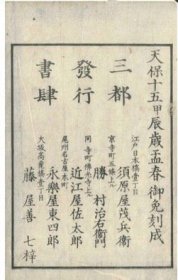 天保十五甲辰歳孟春御免刻成
三都
發行
書肆
江戸日本橋壹丁目
須原屋茂兵衛
京寺町五條
勝村治右衛門
同寺町佛光寺
近江屋佐太郎
尾州名古屋本町
永樂屋東四郎
大坂高麗橋壹丁目
藤屋善七梓